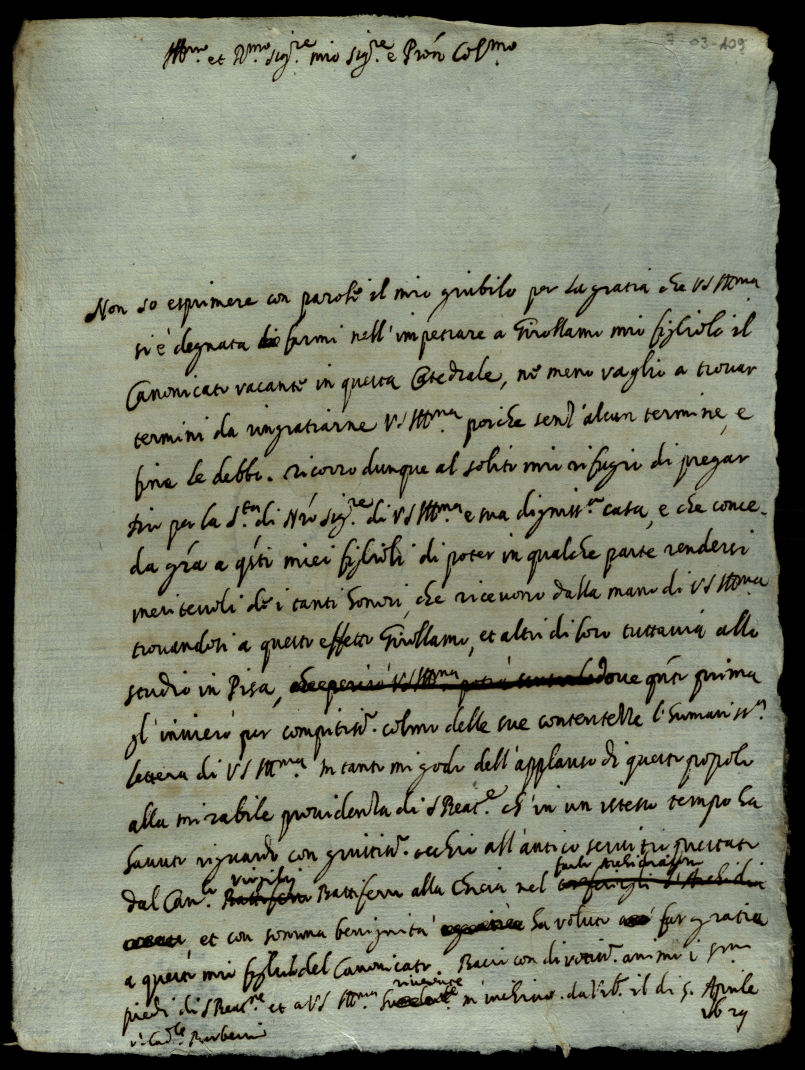 3 03-109
Ill.mo et R.mo Sig.re mio Sig.re e Pron Col.mo
Non so esprimere con parole il mio giubilo per la gratia che VS Ill.ma
si è degnata di farmi nell'impetrare à Girollamo mio figliolo il
Canonicato vacante in questa Catedrale, ne meno vaglio a trovar
termini da ringratiarne VS Ill.ma poiche senz'alcun termine, e
fine le debbo. ricorro dunque al solito mio rifugio di pregar
Dio per la S.tà di Nro Sig.re di VS Ill.ma e sua digniss.a casa, e che conce-
da grã a q̃sti miei figlioli di poter in qualche parte rendersi
meritevoli de i tanti honori, che ricevono dalla mano di VS Ill.ma
trovandosi a questo effetto Girollamo, et altri di loro tuttavia allo
studio in Pisa, dove q̃to prima
gl'invierò per compitiss.o colmo delle sue contentezze l'humaniss.a
lettera di VS Ill.ma In tanto mi godo dell'applauso di questo popolo
alla mirabile providenza di S Beat.e ch'in un istesso tempo ha
havuto riguardo con giustiss.o occhio all'antico servitio prestato
dal Can.co Virgilij Battiferri alla Chiesa nel farlo Archidiacono
et con somma benignità ha voluto far gratia
a questo mio figliolo del Canonicato. Bacio con divotiss.o animo i
piedi di S Beat.ne et a VS Ill.ma riverente m'inchino. da Urb.o il di 5. Aprile
1629
S. Card.le Barberini